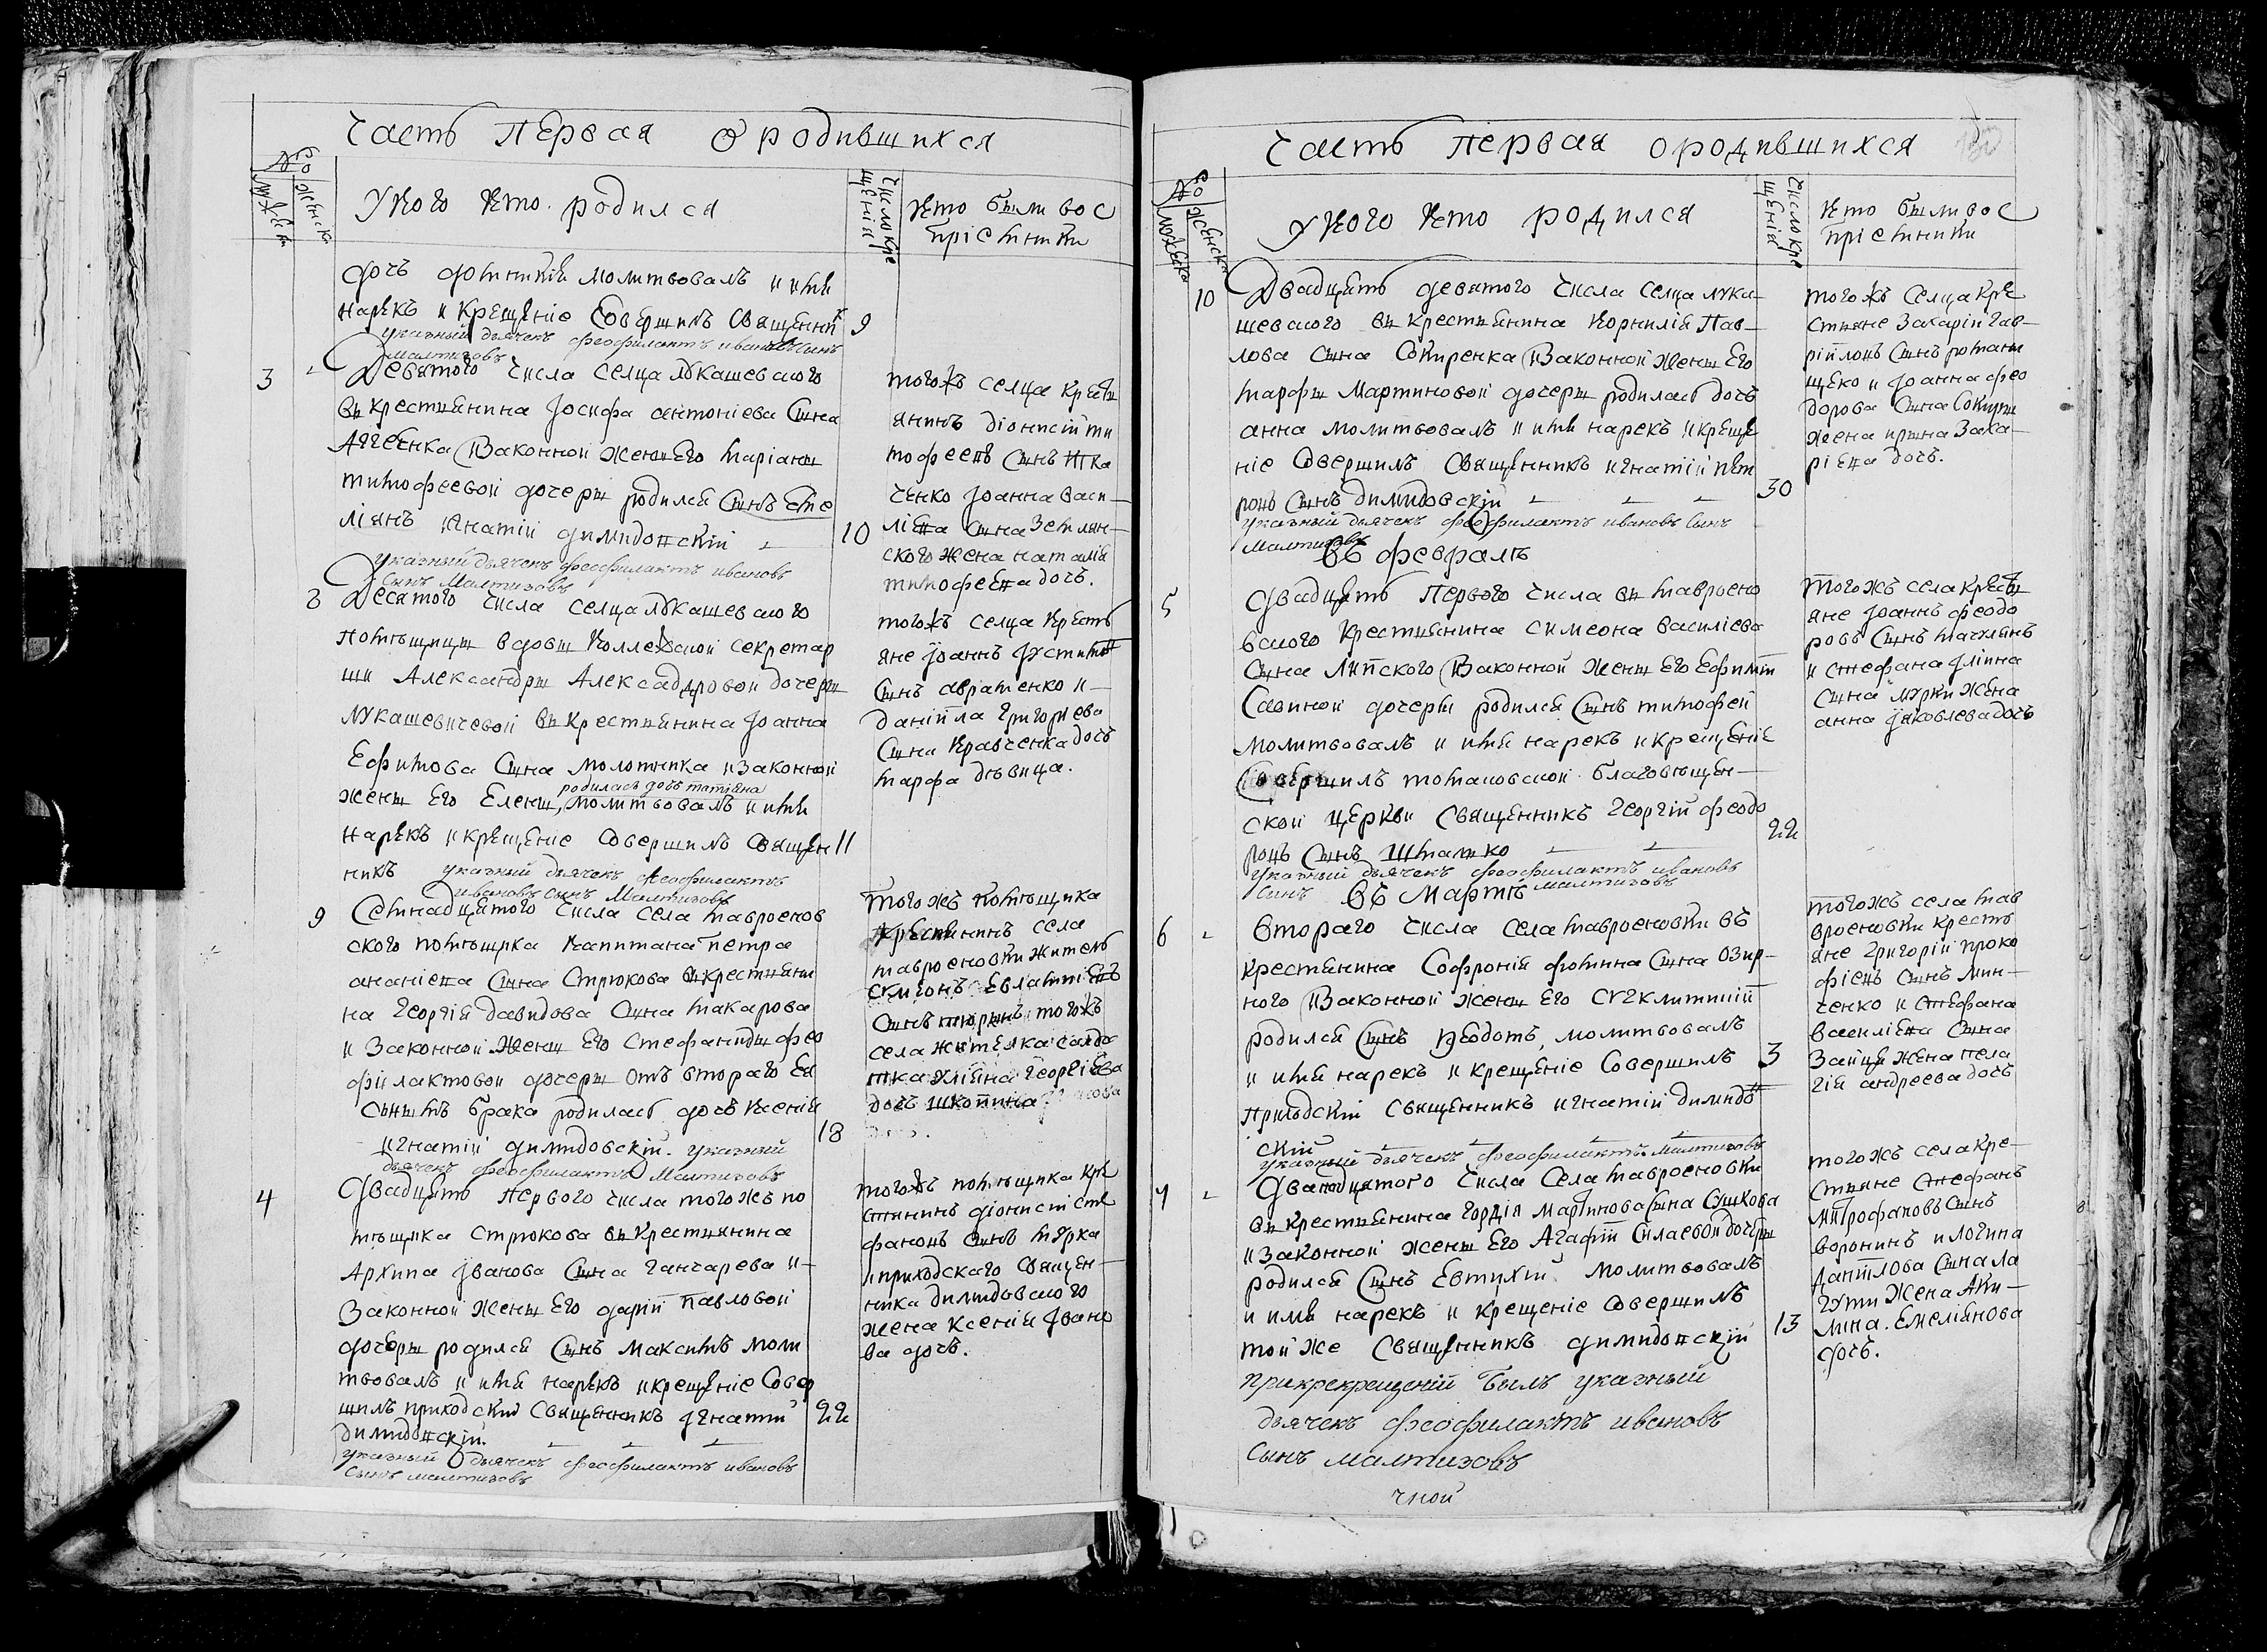 Часть первая о родившихся
№
мужеск
женск
У кого кто родился
Число кре
щенія
Кто были вос
пріемники
дочь молитвовалъ и имя
нарекъ и крещеніе совершилъ священник 9
указный дьячекъ феофилактъ ивановъ сынъ
малтизовъ
3 Девятого числа селца Лукашевского
вк крестьянина Іосифа антоніева сына
законной жены его маріаны
тимофеевой дочеры родился сынъ Еме
ліянъ игнатій димидовскій 10
указный дьячекъ феофилактъ ивановъ
сынъ Малтизовъ
того жъ селца крестъ
янинъ діонисій ти
мофеевъ сынъ тка
ченко Іоанна васи
ліева сына землян
ского жена наталія
тимофеева дочь.
8 Десятого числа селца Лукашевского
помѣщицы вдовы коллежской секретар
ши Александры Александровой дочеры
лукашевичевой вк крестьянина Іоанна
Ефимова сына молотника и законной
жены его Елены, молитвовалъ и имя
родилась дочь татіана
нарекъ и крещеніе совершилъ священ 11
никъ указный дьячекъ феофилактъ
ивановъ сынъ Малтизовъ
того жъ селца крестъ
яне Іоаннъ Іустиновъ
сынъ авраменко и
даніила григоріева
сына кравченка дочь
марфа дѣвица.
9 Семнадцятого числа села мавроенов
ского помѣщика капитана петра
ананіева сына Стрюкова вк крестьяни
на Георгія давидова сына макарова
и законной жены его стефаниды фео
филактовой дочеры отъ втораго ея
сыномъ брака родилась дочь ксенія
игнатій димидовскій. указный 18
дьячекъ феофилактъ Малтизовъ
того жъ помѣщика
крестьянинъ села
мавроеновки житель
сынъ того жъ
села жителка солда
тка Георгіева
дочь
4 двадцять первого числа того жъ по
мѣщика стрюкова вк крестьянина
Архипа Іванова сына ганчарева и
законной жены его даріи павловой
дочеры родился сынъ максимъ моли
твовалъ и имя нарекъ и крещеніе совер
шилъ приходскій священникъ Ігнатій 22
димидовскій.
указный дьячекъ феофилактъ ивановъ
сынъ малтизовъ
того жъ помѣщика кре
стянинъ діонисій сте
фановъ сынъ
и приходскаго священ
ника димидовского
жена ксенія Івано
ва дочь.
Часть первая о родившихся
№
мужеска
женска
У кого кто родился
Число кре
щенія
Кто были вос
пріемники
10 Двадцять девятого числа селца лука
шевского вк крестьянина корнилія Пав
лова сына сокиренка законной жены его
марфы мартиновой дочеры родилась дочь
анна молитвовалъ и имя нарекъ и креще
ніе совершилъ священникъ игнатій пет
ровъ сынъ димидовскій 30
указный дьячекъ феофилактъ ивановъ сынъ
малтизовъ
того жъ селца кре
стяне захарій гав
ріиловъ сынъ романи
щенко и Іоанна фео
дорова сына сокиры
жена ирына заха
ріева дочь.
въ февралѣ
5 двадцять первого числа вк мавроено
вского крестьянина симеона василіева
сына липского законной жены его ефиміи
савиной дочеры родился сынъ тимофей
молитвовалъ и имя нарекъ и крещеніе
совершилъ благовѣщен
ской церкви священникъ Георгій феодо
ровъ сынъ 22
указный дьячекъ феофилактъ ивановъ
сынъ малтизовъ
того жъ села крестъ
яне Іоаннъ феодо
ровъ сынъ
и стефана
сына мурки жена
анна Іаковлева дочь
въ Мартѣ
6 второго числа села мавроеновки вк
крестянина софронія фомина сына озир
ного законной жены его
родился сынъ феодотъ, молитвовалъ
и имя нарекъ и крещеніе совершилъ 3
приходскій священникъ игнатій димидов
скій
указный дьячекъ феофилактъ малтизовъ
того жъ села мав
вроеновки кресть
яне Григорій проко
фіевъ сынъ мин
ченко и стефана
василіева сына
зайця жена пела
гія андреева дочь
7 дванадцятого числа села мавроеновки
вк крестьянина гордія мартинова сына сушкова
и законной жены его Агафіи силаевой дочеры
родился сынъ Евтухій. молитвовалъ
и имя нарекъ и крещеніе совершилъ
той же священникъ димидовскій 13
прикрекрещеній былъ указный
дьячекъ феофилактъ ивановъ
сынъ малтизовъ
чной
того жъ села кре
стьяне стефанъ
митрофановъ сынъ
воронинъ и логина
даніилова сына ла
гути жена аки
лина. Емеліянова
дочь.